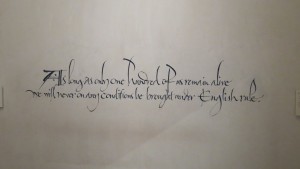 As long as only one hundred of us remain alive
we will never on any conditions be brought under English rule.